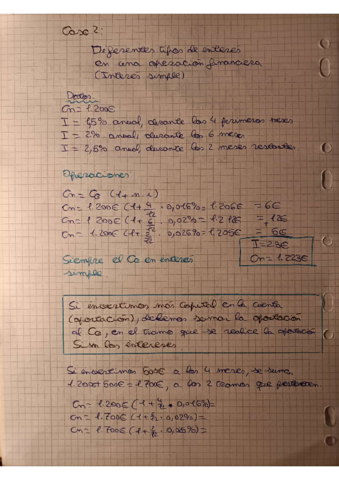 Caso 2:
Diferentes tipos de interés
en una operación financiera
(Interés simple)
Datos.
Cn = 1.200€
I = 1,5% anual, durante los 4 primeros meses
I = 2% anual, durante los 6 meses
I = 2,5% anual, durante los 2 meses restantes
Operaciones
Cn = Co (1 + n · i)
Cn = 1.200€ (1 + 4/12 · 0,015%) = 1.206€ = 6€
Cn = 1.200€ (1 + 6/12 · 0,02%) = 1.212€ = 12€
Cn = 1.200€ (1 + 2/12 · 0,025%) = 1.205€ = 5€
I = 23€
Cn = 1.223€
Siempre el Co en interés
simple
Si invertimos más capital en la cuenta
(aportación), debemos sumar la aportación
al Co, en el tramo que se realice la aportación
Sin los intereses
Si invertimos 500€ a los 4 meses, se suma,
1.200€ + 500€ = 1.700€, a los 2 tramos que
Cn = 1.200€ (1 + 4/12 · 0,015%) =
Cn = 1.700€ (1 + 6/12 · 0,02%) =
Cn = 1.700€ (1 + 2/12 · 0,025%) =